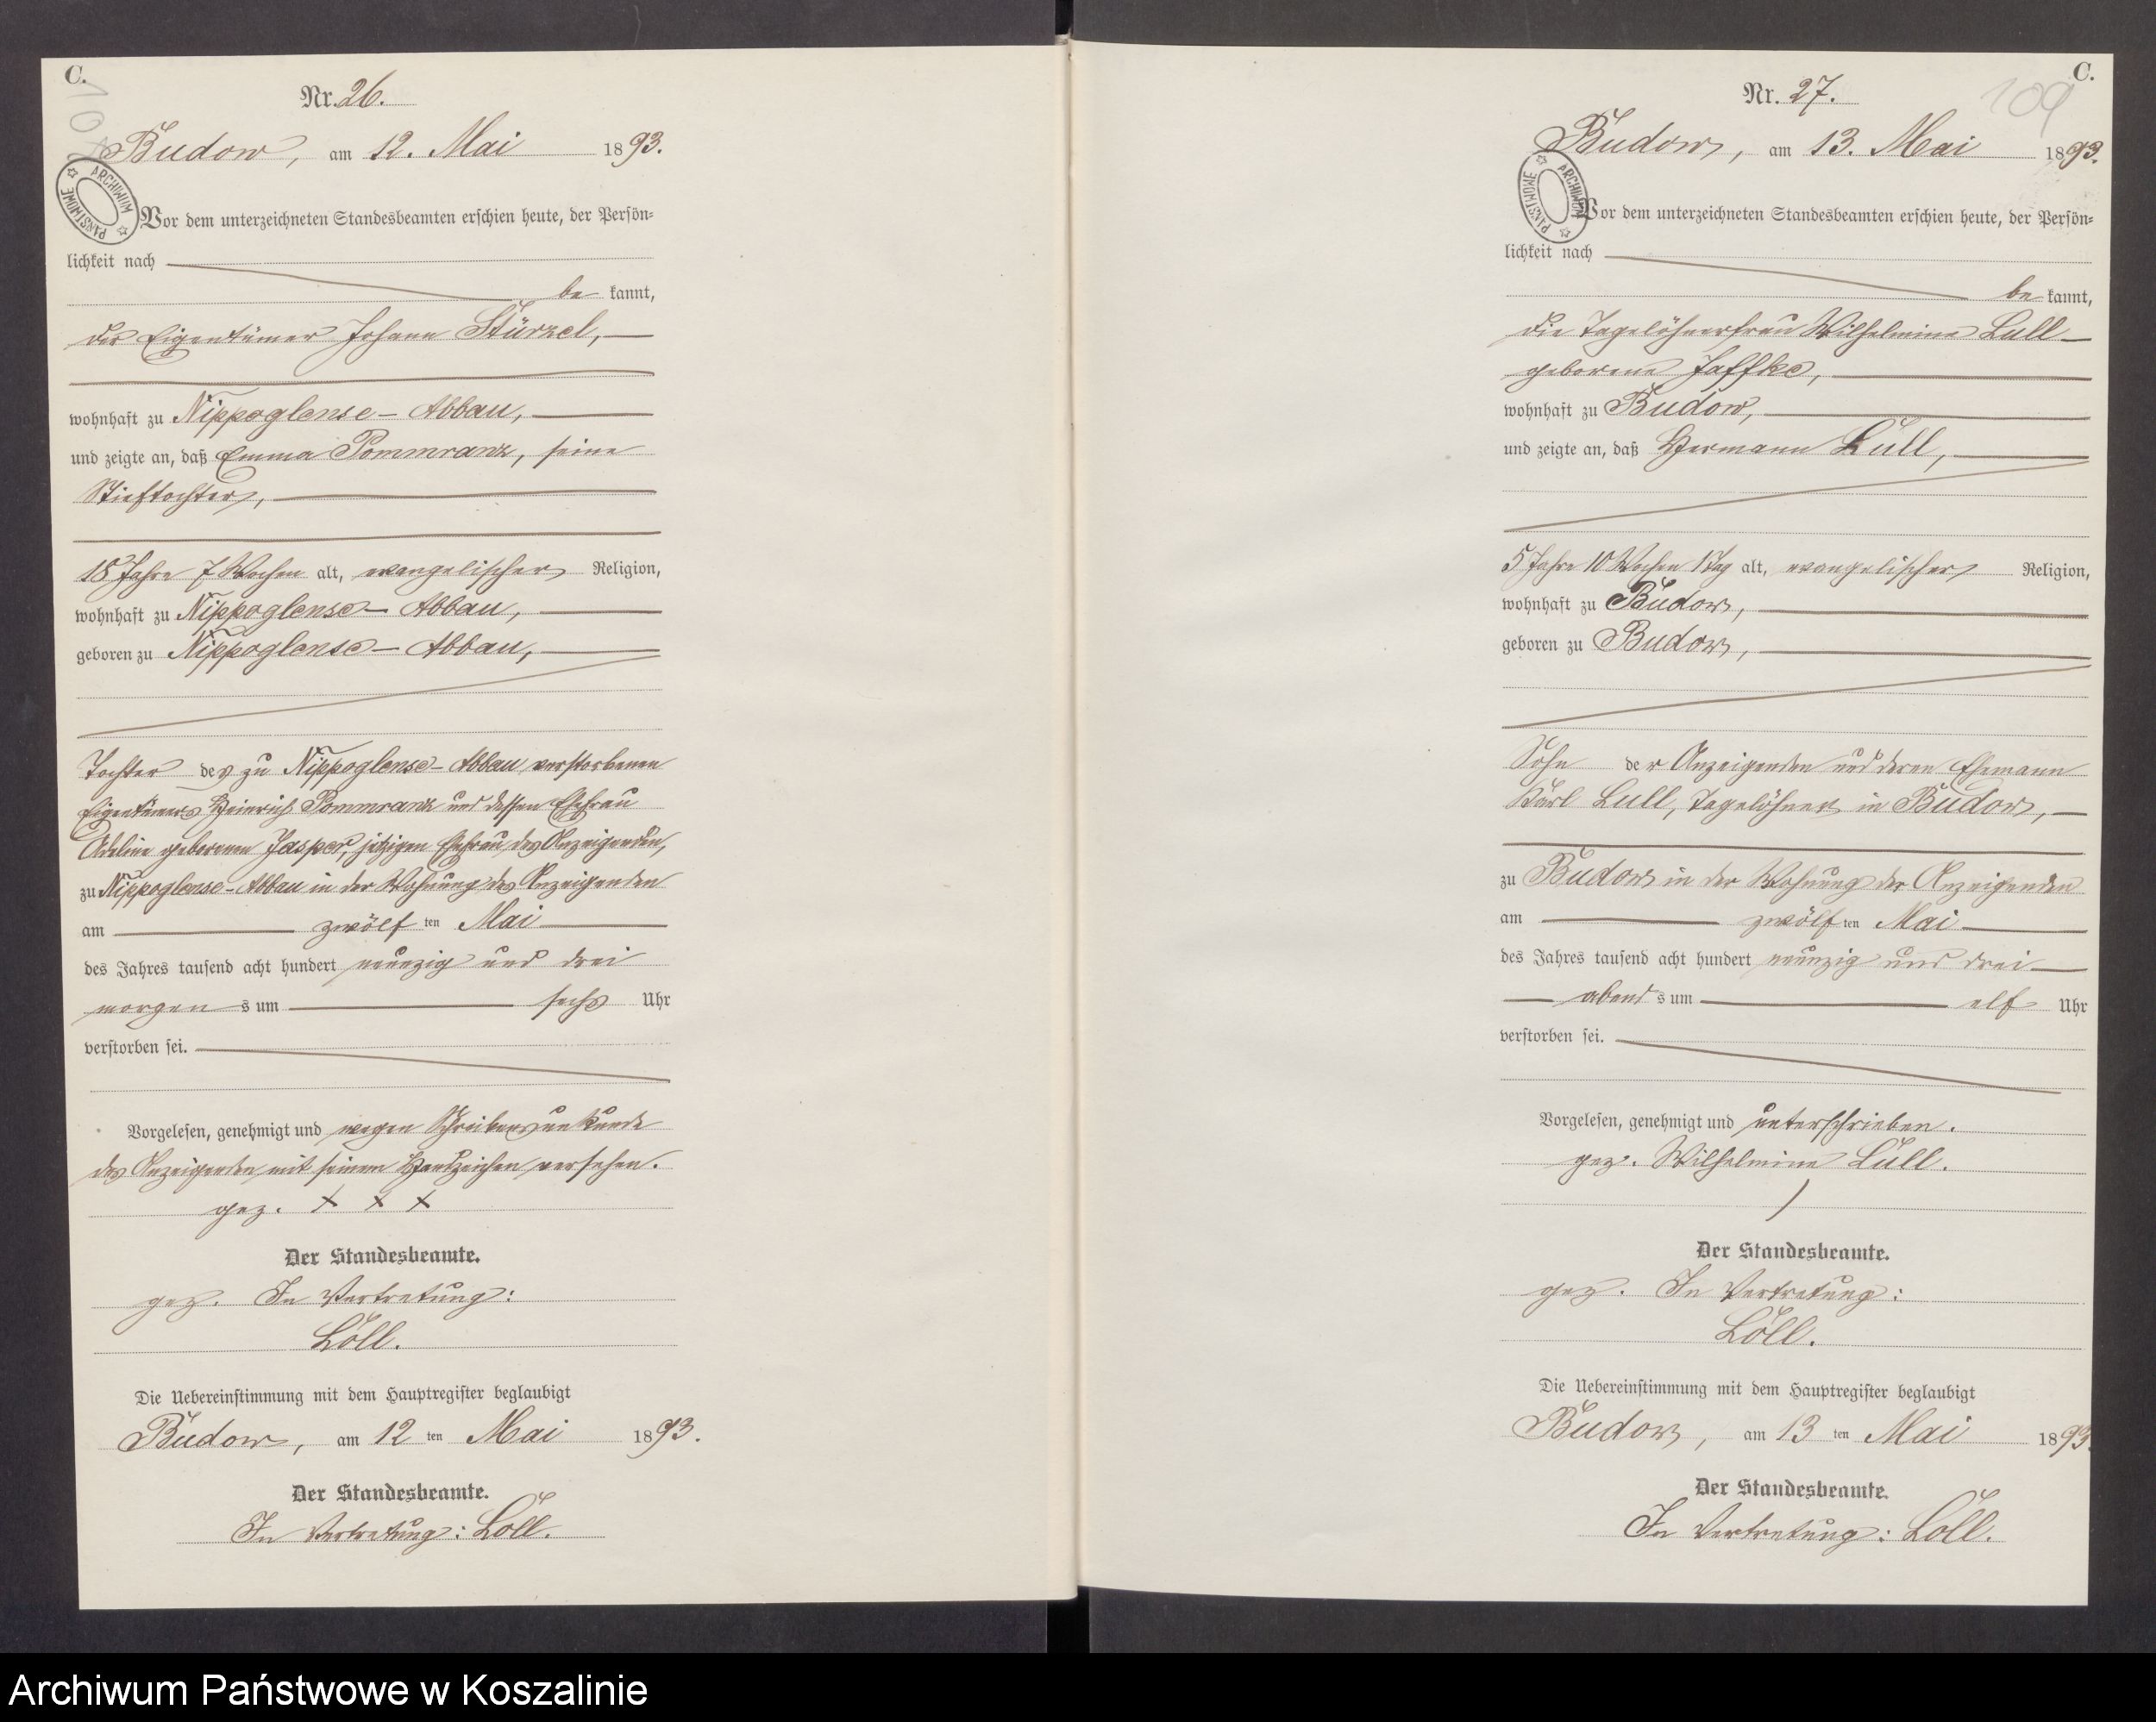 C.
Nr. 26.
Budow, am 12. Mai 1893.
ARCHIWUM PAŃSTWOWE
Vor dem unterzeichneten Standesbeamten erschien heute, der Persön-
lichkeit nach
be kannt,
der Eigentümer Johann Stürzel,
wohnhaft zu Nippoglense - Abbau,
und zeigte an, daß Emma Pommranz, seine
Stieftochter,
18 Jahre 7 Wochen alt, evangelischer Religion,
wohnhaft zu Nippoglense - Abbau,
geboren zu Nippoglense - Abbau,
Tochter des zu Nippoglense - Abbau verstorbenen
Eigentümers Heinrich Pommranz und dessen Ehefrau
Adeline geborenen Jasper, jetzigen Ehefrau des Anzeigenden,
zu Nippoglense - Abbau in der Wohnung des Anzeigenden
am zwölf ten Mai
des Jahres tausend acht hundert neunzig und drei
morgen s um sechs Uhr
verstorben sei.
Vorgelesen, genehmigt und wegen Schreibensunkunde
des Anzeigenden mit seinem Handzeichen versehen.
gez. + + +
Der Standesbeamte.
gez. In Vertretung:
Löll.
Die Uebereinstimmung mit dem Hauptregister beglaubigt
Budow, am 12 ten Mai 1893.
Der Standesbeamte.
In Vertretung: Löll.
C.
109
Nr. 27.
Budow, am 13. Mai 1893.
ARCHIWUM PAŃSTWOWE
Vor dem unterzeichneten Standesbeamten erschien heute, der Persön-
lichkeit nach
be kannt,
die Tagelöhnerfrau Wilhelmine Lull
geborene Jaffke,
wohnhaft zu Budow,
und zeigte an, daß Hermann Lull,
5 Jahre 10 Wochen 1 Tag alt, evangelischer Religion,
wohnhaft zu Budow,
geboren zu Budow,
Sohn der Anzeigenden und deren Ehemann
Karl Lull, Tagelöhner in Budow,
zu Budow in der Wohnung der Anzeigenden
am zwölf ten Mai
des Jahres tausend acht hundert neunzig und drei
abend s um elf Uhr
verstorben sei.
Vorgelesen, genehmigt und unterschrieben.
gez. Wilhelmine Lull.
Der Standesbeamte.
gez. In Vertretung:
Löll.
Die Uebereinstimmung mit dem Hauptregister beglaubigt
Budow, am 13 ten Mai 1893.
Der Standesbeamte.
In Vertretung: Löll.
Archiwum Państwowe w Koszalinie